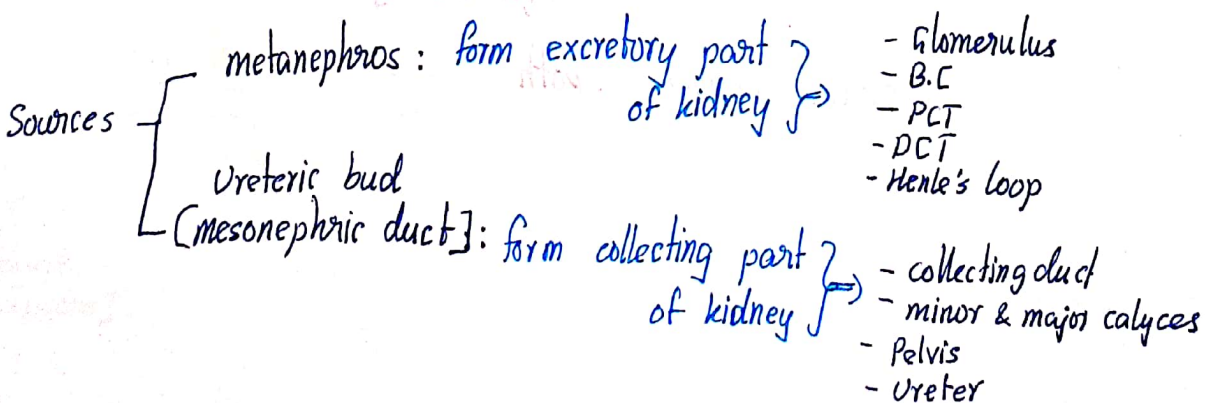 Sources
metanephros : form excretory part
of kidney
- Glomerulus
- B.C
- PCT
- DCT
- Henle's loop
Ureteric bud
[mesonephric duct]: form collecting part
of kidney
- collecting duct
- minor & major calyces
- Pelvis
- Ureter